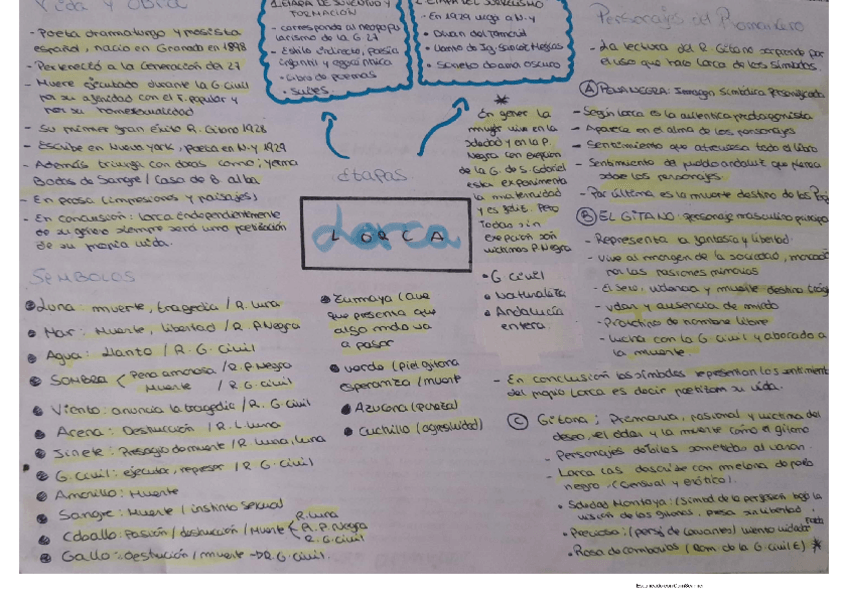 Vida y Obra
- Poeta dramaturgo y prosista
español, nació en Granada en 1898
- Perteneció a la Generación del 27
- Muere ejecutado durante la G. Civil
por su afinidad con el F. popular y
por su homosexualidad
- Su primer gran éxito R. Gitano 1928
- Escribe en Nueva York, Poeta en N.Y 1929
- Además triunfa con obras como; Yerma
Bodas de Sangre / Casa de B. alba
- En prosa (impresiones y paisajes)
- En conclusión: Lorca independientemente
de su género siempre será una
de su propia vida.
1. ETAPA DE JUVENTUD Y
FORMACIÓN
- corresponde al neopopu
larismo de la G 27
- Estilo sindirecto, poesía
infantil y
• Libro de poemas
• Suites
2. ETAPA DEL SURREALISMO
- En 1929 viaja a N.Y
• Divan del Tamarit
• Llanto de Ig. Sánchez Mejías
• Soneto de amor oscuro
etapas
LORCA
*
En gener la
mujer vive en la
soledad y en la P.
Negra con excepción
de la G. de S. Gabriel
esta experimenta
la maternidad
y es feliz. Pero
Todas sin
excepción son
víctimas P. Negra
• G. civil
• Naturaleza
• Andalucía
entera
SÍMBOLOS
Luna: muerte, tragedia / R. luna
Mar: Muerte, libertad / R. P. Negra
Agua: llanto / R. G. Civil
SOMBRA Pena amorosa / R. P. Negra
Muerte / R. G. civil
Viento: anuncia la tragedia / R. G. civil
Arena: Destrucción / R. L. luna
Jinete: Presagio de muerte / R. luna, luna
G. civil: ejecutor, represor / R. G. Civil
Amarillo: Muerte
Sangre: Muerte / instinto sexual
Caballo: Pasión / destrucción / Muerte R. luna
R. P. Negra
R. G. civil
Gallo: destrucción / muerte → R. G. civil.
Zumaya (ave
que presenta que
algo malo va
a pasar
verde (piel gitana
esperanza / muerte
Azucena (pureza)
Cuchillo (agresividad)
Personajes del Romancero
- La lectura del R. Gitano sorprende por
el uso que hace Lorca de los símbolos.
A PENA NEGRA: Imagen Simbólica Personificada
- Según Lorca es la auténtica protagonista
- Aparece en el alma de los personajes
- Sentimiento que atraviesa todo el libro
- Sentimiento de pueblo andaluz que planea
sobre los personajes.
- Por último es la muerte destino de los
B EL GITANO: personaje masculino
- Representa la fantasía y libertad.
- Vive al margen de la sociedad,
por las pasiones
- El sexo, violencia y muerte destino
- valor y ausencia de miedo
- Prototipo de hombre libre
- lucha con la G. civil y abocado a
la muerte
- En conclusión los símbolos representan los sentimient
del propio Lorca es decir poetizan su vida.
C Gitana; Prematura, pasional y víctima del
deseo, el dolor y la muerte como el gitano
- Personajes débiles sometidos al varón.
- Lorca las describe con melena de pelo
negro, (sensual y erótico).
• Soledad Montoya: (Símbol de la perfección bajo la
visión de los gitanos, presa sin libertad
• Preciosa: (pers. de Cervantes) viento violador
• Rosa de Camborios (Rom. de la G. civil E) *
Escaneado con CamScanner